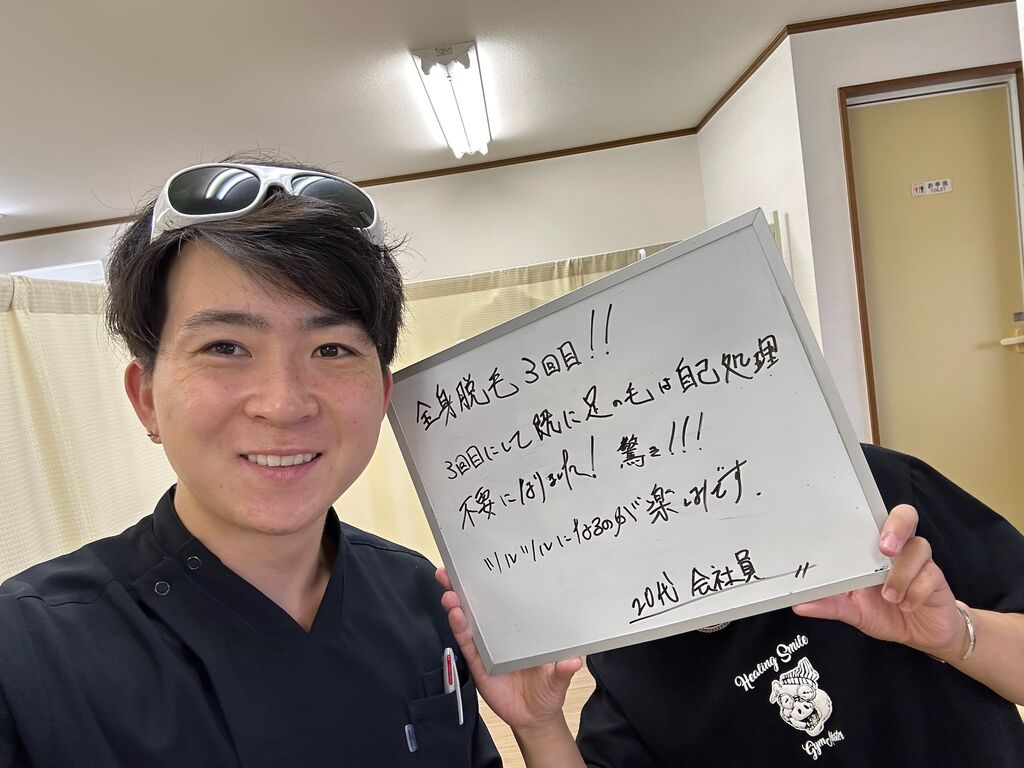 お手洗
TOILET
全身脱毛 3回目!!
3回目にして既に足の毛は自己処理
不要になりました! 驚き!!!
ツルツルになるのが楽しみです.
20代 会社員
Healing Smile
Gym